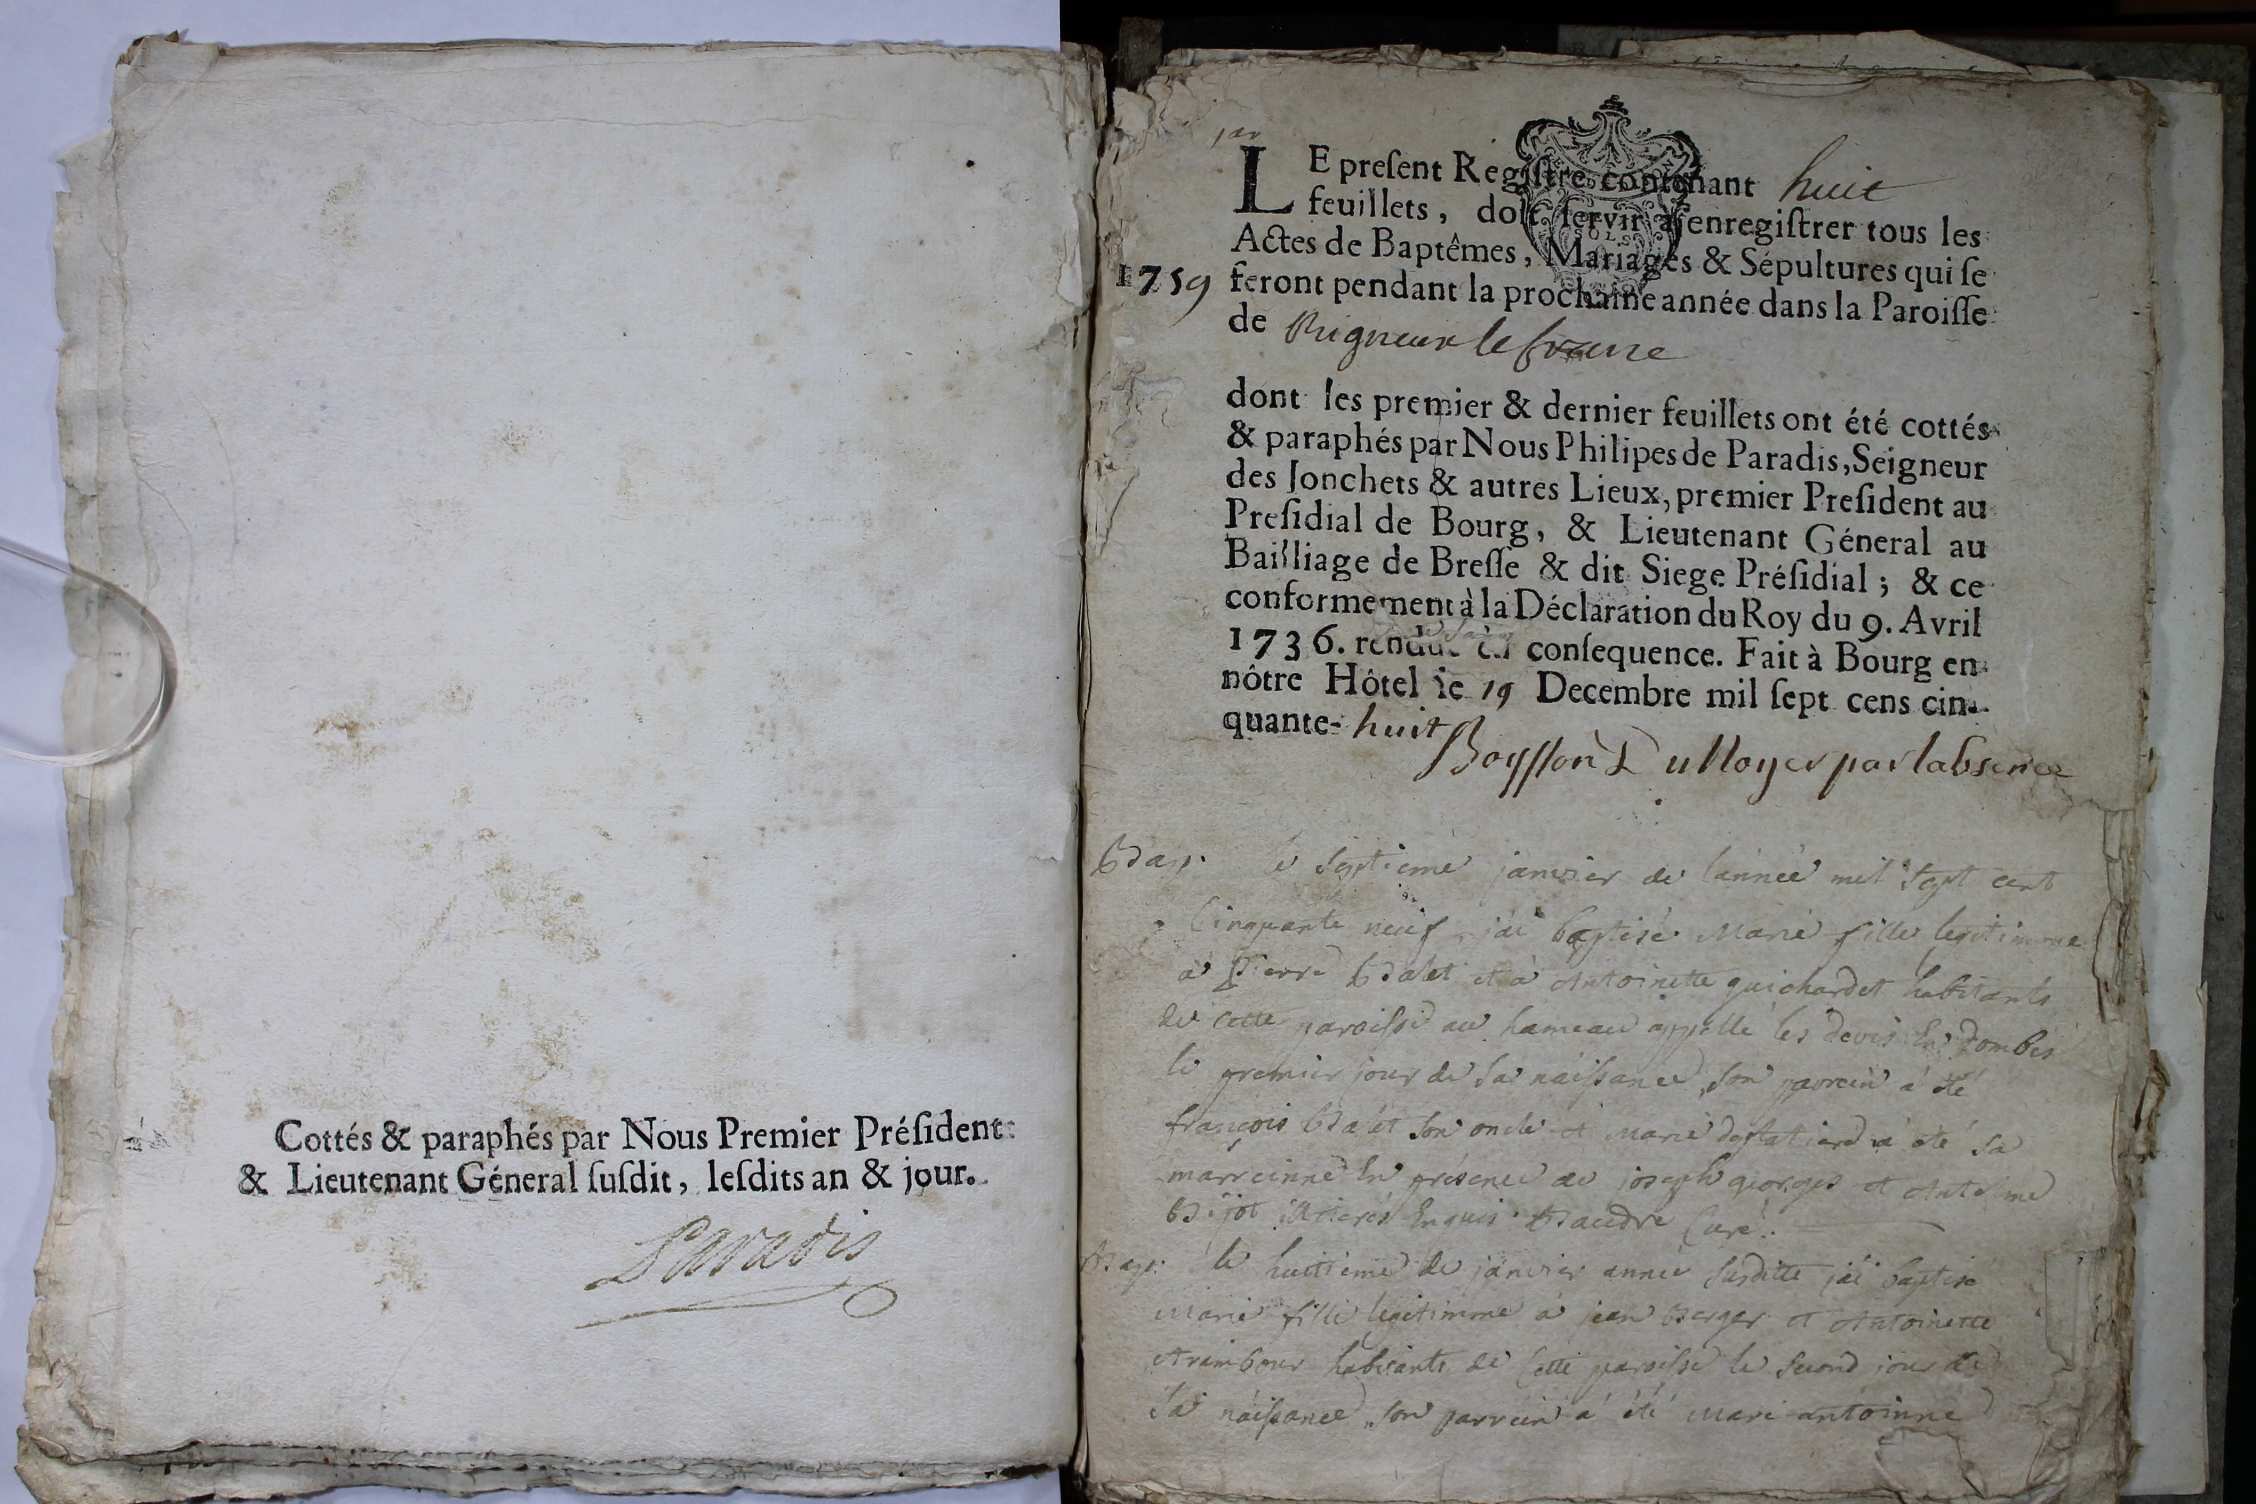 Cottés & paraphés par Nous Premier Préſident
& Lieutenant Géneral ſuſdit, leſdits an & jour.
Paradis
1759
LE preſent Regiſtre contenant huit
feuillets, doit ſervir à enregiſtrer tous les
Actes de Baptêmes, Mariages & Sépultures qui ſe
feront pendant la prochaine année dans la Paroiſſe
de Rigneux le franc
dont les premier & dernier feuillets ont été cottés
& paraphés par Nous Philipes de Paradis, Seigneur
des Jonchets & autres Lieux, premier Preſident au
Preſidial de Bourg, & Lieutenant Géneral au
Bailliage de Breſſe & dit Siege Préſidial ; & ce
conformement à la Déclaration du Roy du 9. Avril
1736. rendue en conſequence. Fait à Bourg en
nôtre Hôtel le 19 Decembre mil ſept cens cin-
quante- huit
par labsence
Bap. le septieme janvier de lannée mil sept cent
Cinquante neuf jai baptisé Marie fille legitimme
à Pierre Balet et à Antoinette guichardet habitants
de cette paroisse au hameau appellé les devis En Dombes
le premier jour de sa naissance, son parrein a été
françois Balet son oncle et Marie a été sa
marreinne En présence de joseph georges et Antelme
Bijot illiterés Enquis. Baudre Curé.
Bap. le huitieme de janvier année susditte jai baptisé
Marie fille legitimme à jean Berger et Antoinette
habitants de Cette paroisse le second jour de
sa naissance, son parrein a été Marc antoinne